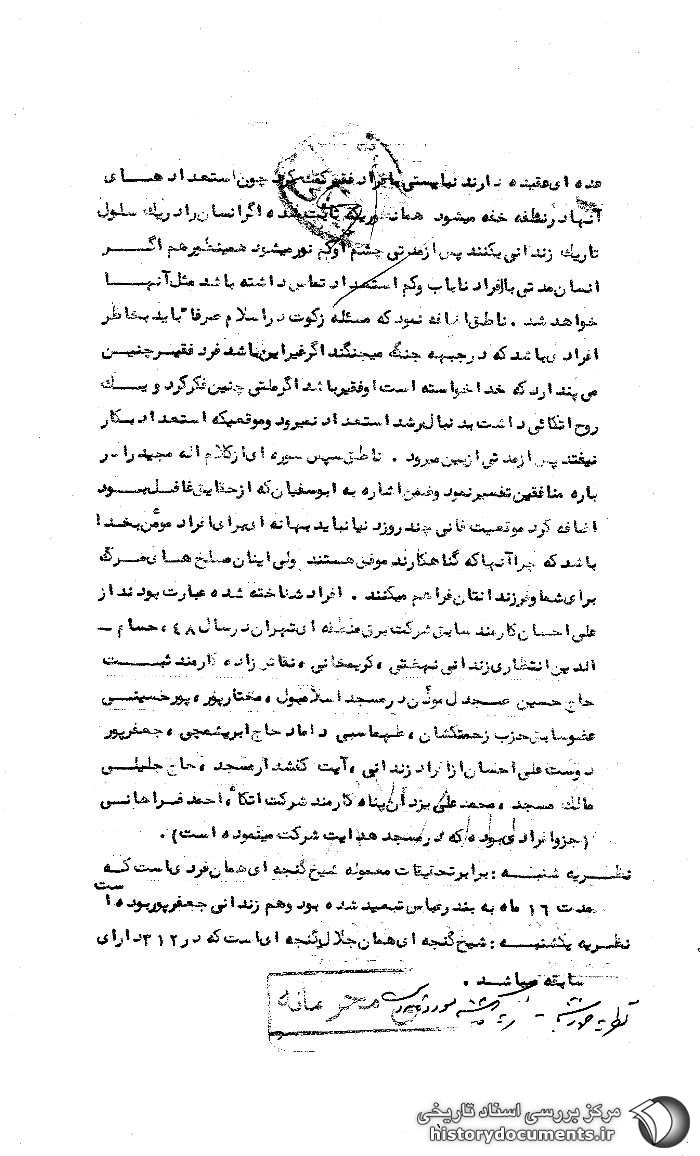 عده ای عقیده دارند نبایستی با افراد فقیر کمک کرد چون استعداد هـــای
آنها در نطفه خفه میشود همانطوریکه ثابت شده اگر انسان را در یک سلول
تاریک زندانی بکنند پس از مدتی چشم او کم نور میشود همینطور هم اگـــر
انسان مدتی با افراد ناباب و کم استعداد تماس داشته باشد مثل آنهـــا
خواهد شد . ناطق اضافه نمود که مسئله زکوت در اسلام صرفا" باید بخاطر
افرادی باشد که در جبهه جنگ میجنگند اگر غیر این باشد فرد فقیر چنین
می پندارد که خدا خواسته است او فقیر باشد اگر ملتی چنین فکر کرد و یــک
روح اتکائی داشت بدنبال رشد استعداد نمیرود و موقعیکه استعداد بکار
نیفتد پس از مدتی از بین میرود . ناطق سپس سوره ای از کلام اله مجید را در
باره منافقین تفسیر نمود و ضمن اشاره به ابوسفیان که از حقایق غافل بــود
اضافه کرد موقعیت فانی چند روزه دنیا نباید بهانه ای برای افراد مؤمن بخدا
باشد که چرا آنها که گناهکارند موفق هستند ولی اینان صلح های مرگ
برای شما و فرزندانتان فراهم میکنند . افراد شناخته شده عبارت بودند از
علی احسان کارمند سابق شرکت برق منطقه ای تهران در سال ۴۸ ، حسام ــ
الدین انتظاری زندانی نهضتی ، کریمخانی ، نقاش زاده کارمند ثبـــت
حاج حسین موذن در مسجد اسلامبول ، مختارپور ، پورحسینــی
عضو سابق حزب زحمتکشان ، طهماسبی داماد حاج ابریشمچی ، جعفرپور
دوست علی احسان از افراد زندانی ، آیت کفشدار مسجد ، حاج جلیلــی
مالک مسجد ، محمد علی یزدان پناه کارمند شرکت اتکاء ، احمد فــراهانــی
(جزو افرادی بوده که در مسجد هدایت شرکت مینموده است) .
نظـــریه شنبـــه : برابر تحقیقات معموله شیخ گنجه ای همان فردی است کــه
مدت ۱۶ ماه به بندرعباس تبعید شده بود و هم زندانی جعفرپور بوده است
نظـریه یکشنبــه : شیخ گنجه ای همان جلال گنجه ای است که در ۳۱۲ دارای
سابقه میباشد .
محرمانه
مرکز بررسی اسناد تاریخی
historydocuments.ir